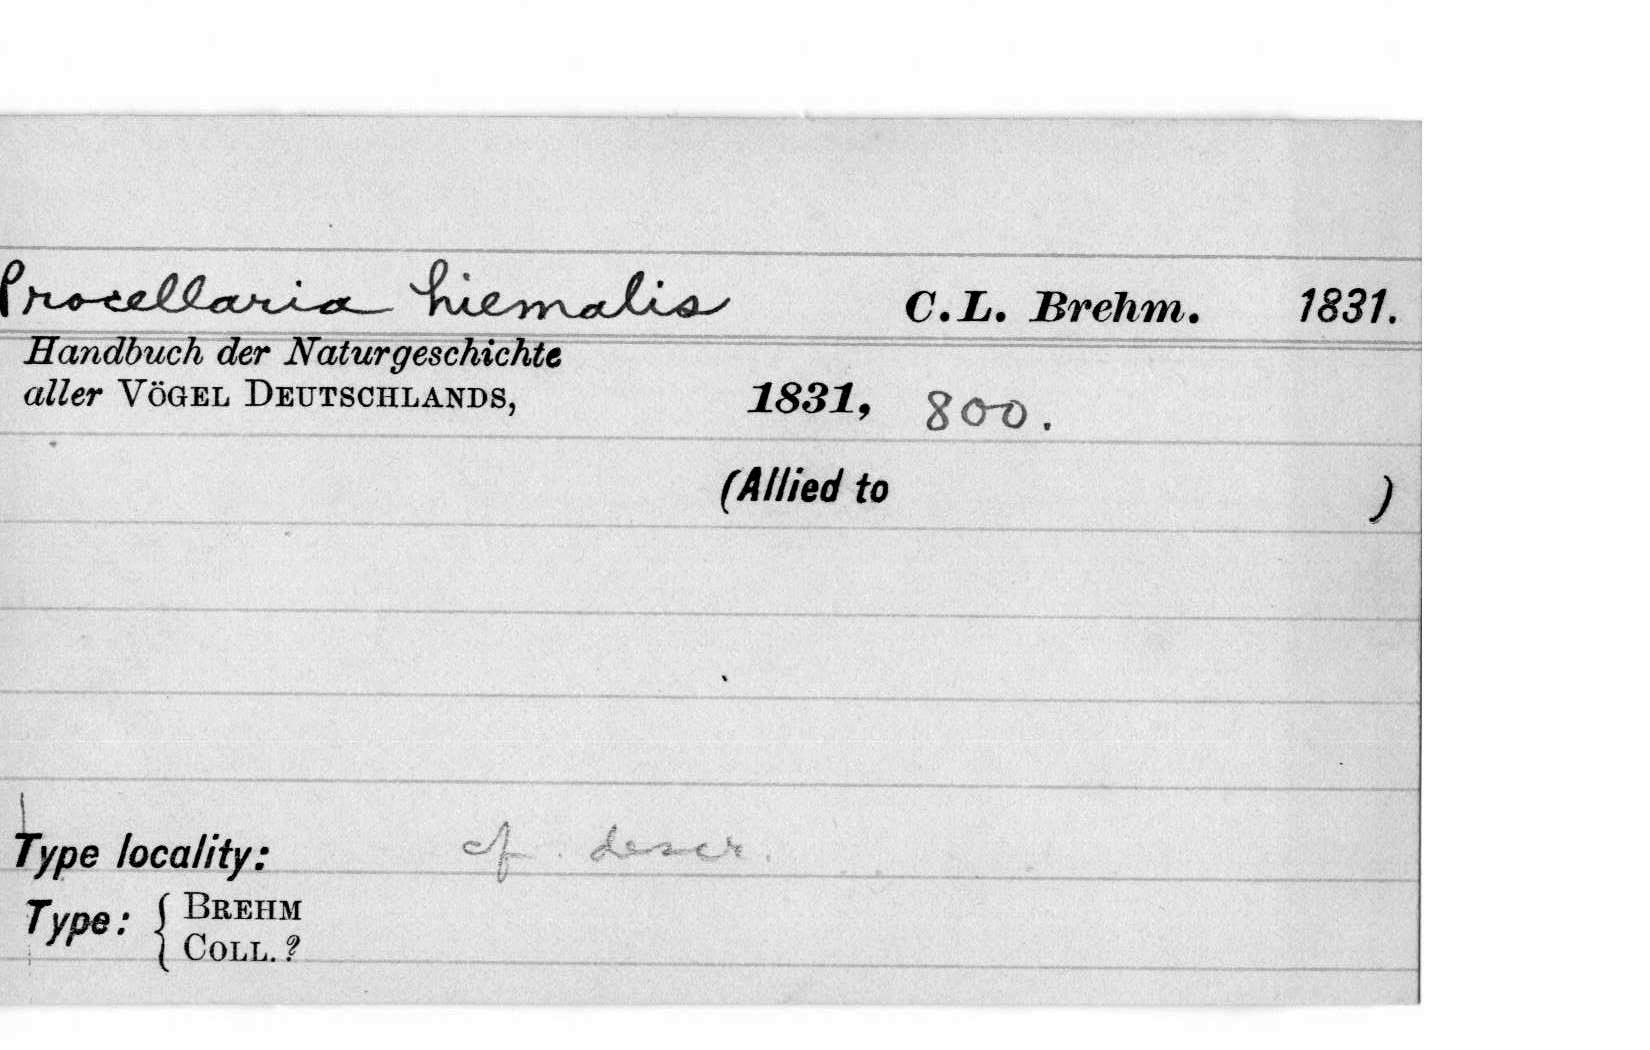 Procellaria hiemalis C.L. Brehm. 1831.
Handbuch der Naturgeschichte
aller VÖGEL DEUTSCHLANDS, 1831, 800.
(Allied to )
Type locality: cf. descr.
Type: { BREHM
COLL. ?